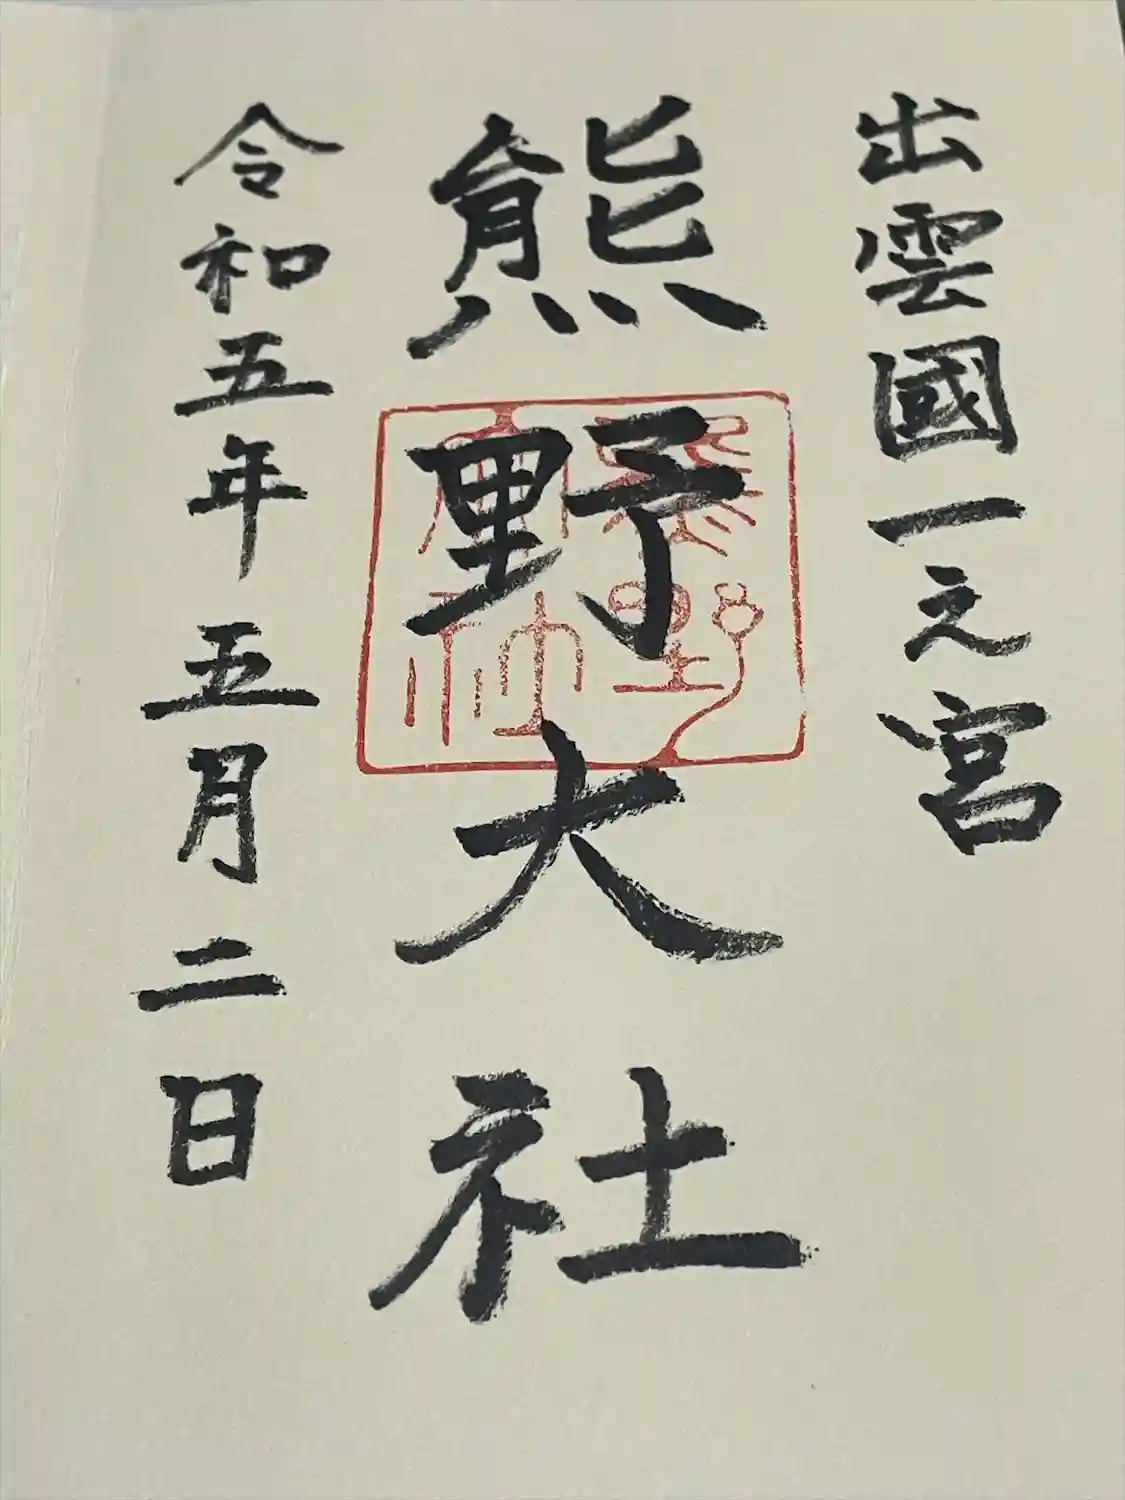 出雲國一之宮
熊野大社
令和五年五月二日
熊野大社